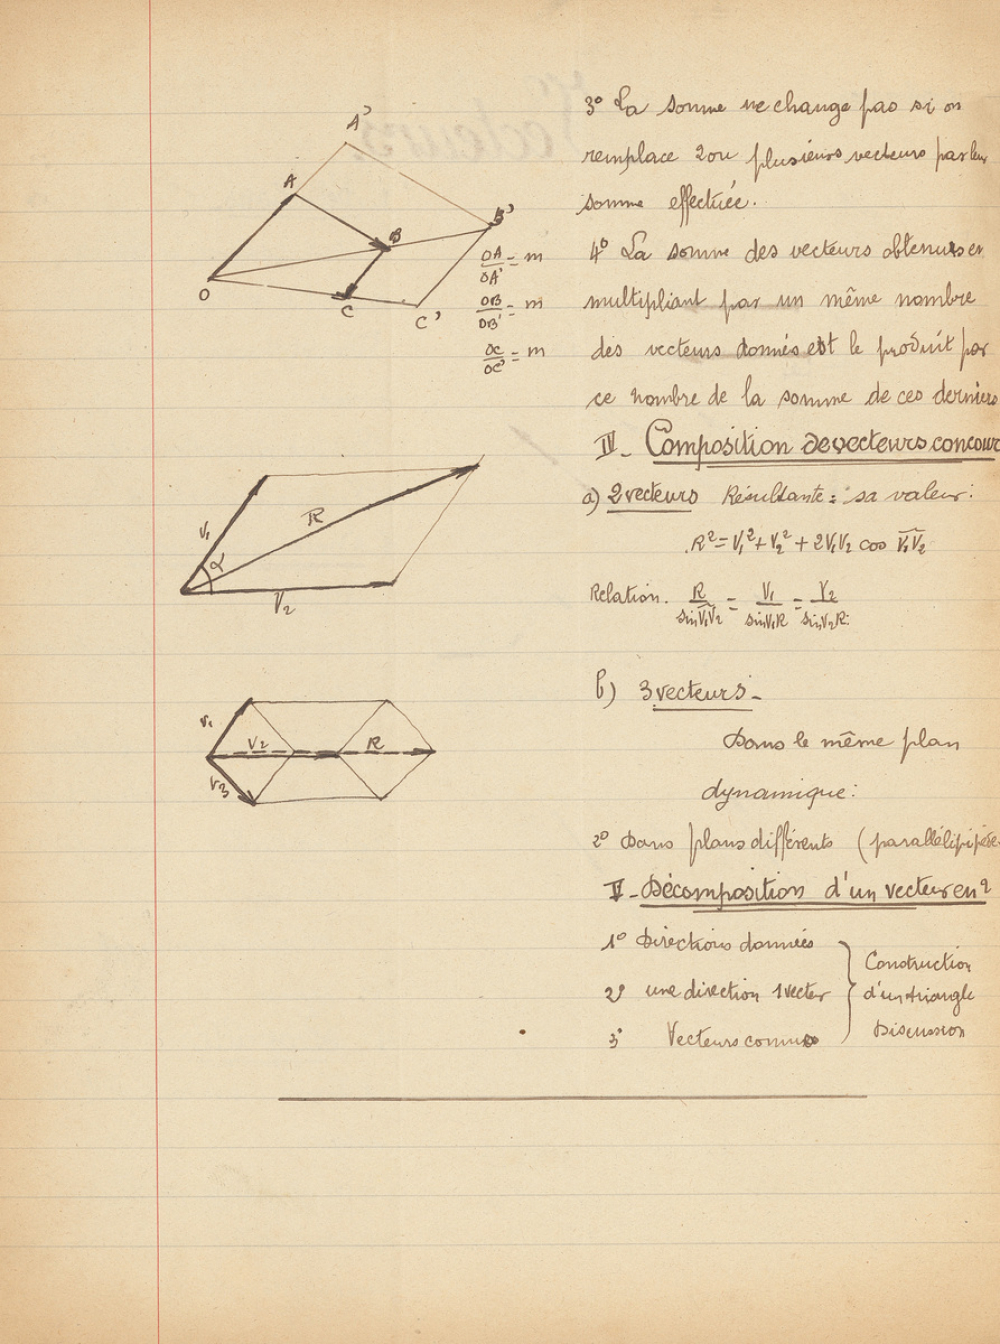 3° La somme ne change pas si on
remplace 2 ou plusieurs vecteurs par leur
somme effectuée.
4° La somme des vecteurs obtenus en
multipliant par un même nombre
des vecteurs donnés est le produit par
ce nombre de la somme de ces derniers
A'
A
B'
B
O
C
C'
OA/OA' = m
OB/OB' = m
OC/OC' = m
IV - Composition de vecteurs concour
a) 2 vecteurs Résultante : sa valeur :
R² = V₁² + V₂² + 2V₁V₂ cos V₁V₂
Relation. R/sin V₁V₂ = V₁/sin V₁R = V₂/sin V₂R
V₁
R
α
V₂
b) 3 vecteurs -
Dans le même plan
dynamique :
2° Dans plans différents (parallélipipède
V₁
V₂
R
V₃
V - Décomposition d'un vecteur en 2
1° Directions données
2° une direction 1 vecteur
3° Vecteurs connus
Construction
d'un triangle
Discussion